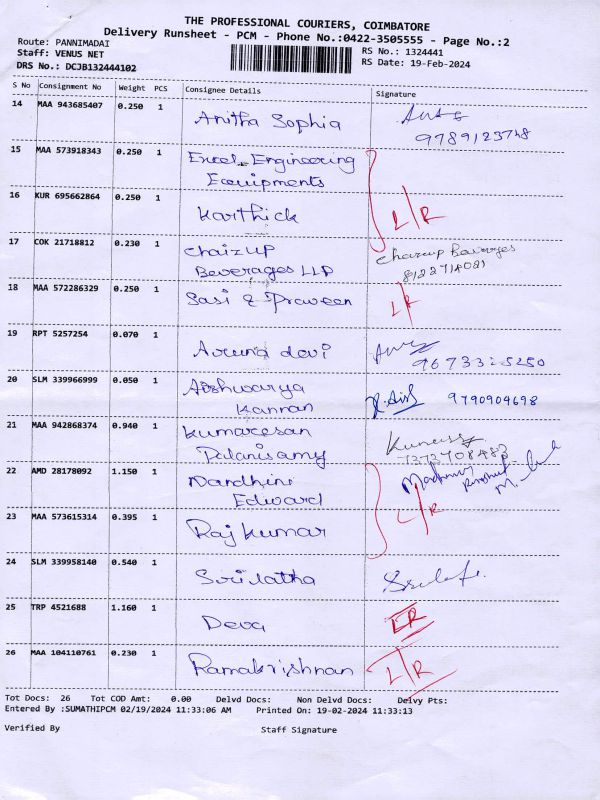 THE PROFESSIONAL COURIERS, COIMBATORE
Delivery Runsheet - PCM - Phone No.:0422-3505555 - Page No.:2
Route: PANNIMADAI
Staff: VENUS NET
DRS No.: DCJB132444102
RS No.: 1324441
RS Date: 19-Feb-2024
S No Consignment No Weight PCS Consignee Details Signature
14 MAA 943685407 0.250 1 Anitha Sophia
9789123748
15 MAA 573918343 0.250 1 Excel Engineering
Equipments
16 KUR 695662864 0.250 1 Karthick L/R
17 COK 21718812 0.230 1 Chaizup
Beverages LLP
Chaizup Beverages
18 MAA 572286329 0.250 1 Sasi & Praveen LR
19 RPT 5257254 0.070 1 Aruna devi
20 SLM 339966999 0.050 1 Aishwarya
Kannan
9790904698
21 MAA 942868374 0.940 1 Kumaresan
Palanisamy
22 AMD 28178092 1.150 1 Nandhini
Edward
L/R
23 MAA 573615314 0.395 1 Raj kumar
24 SLM 339958140 0.540 1 Srilatha
25 TRP 4521688 1.160 1 Deva LR
26 MAA 104110761 0.230 1 Ramakrishnan L/R
Tot Docs: 26 Tot COD Amt: 0.00 Delvd Docs: Non Delvd Docs: Delvy Pts:
Entered By :SUMATHIPCM 02/19/2024 11:33:06 AM Printed On: 19-02-2024 11:33:13
Verified By Staff Signature